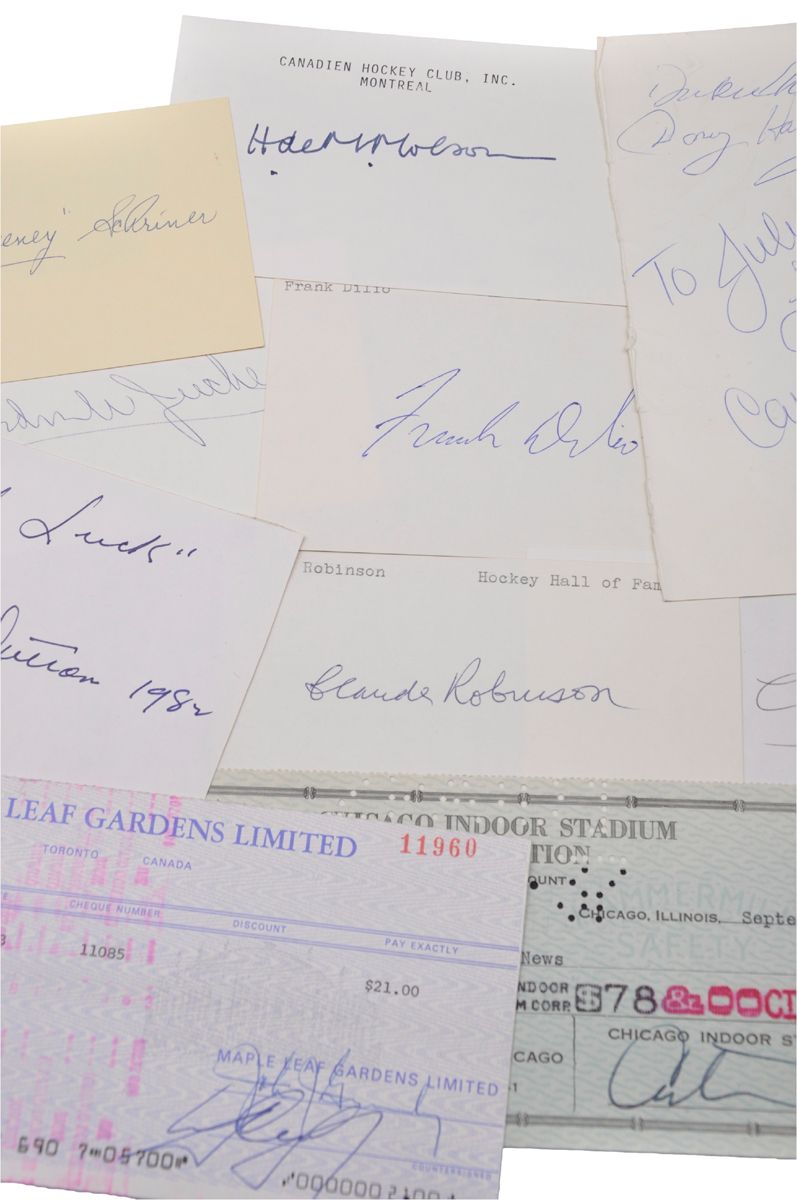 CANADIEN HOCKEY CLUB, INC.
MONTREAL
H de M Molson
eney" Schriner
To
Frank Dilio
Frank Dilio
Luck"
1982
Robinson Hockey Hall of Fam
Claude Robinson
LEAF GARDENS LIMITED 11960
TORONTO CANADA
CHEQUE NUMBER DISCOUNT PAY EXACTLY
11085 $21.00
MAPLE LEAF GARDENS LIMITED
COUNTERSIGNED
CHICAGO INDOOR STADIUM
TION
OUNT
CHICAGO, ILLINOIS, Septe
SAFETY
News
NDOOR
M CORP. $78&00CT
CHICAGO INDOOR S
CAGO